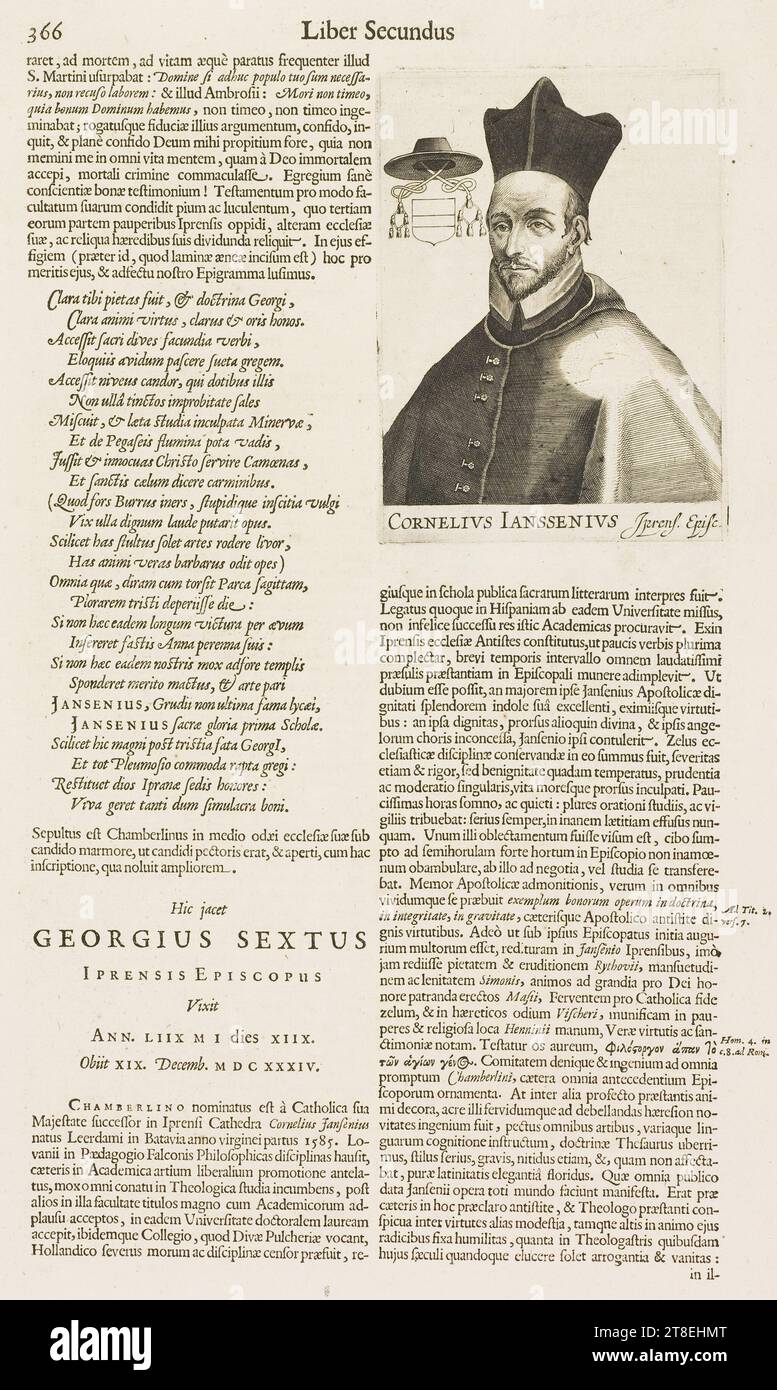 366
Liber Secundus
raret, ad mortem, ad vitam æquè paratus frequenter illud
S. Martini uſurpabat : Domine ſi adhuc populo tuo ſum neceſſa-
rius, non recuſo laborem : & illud Ambroſii : Mori non timeo,
quia bonum Dominum habemus, non timeo, non timeo inge-
minabat ; rogatuſque fiduciæ illius argumentum, confido, in-
quit, & planè confido Deum mihi propitium fore, quia non
memini me in omni vita mentem, quam à Deo immortalem
accepi, mortali crimine commaculaſſe. Egregium ſanè
conſcientiæ bonæ teſtimonium ! Teſtamentum pro modo fa-
cultatum ſuarum condidit pium ac luculentum, quo tertiam
eorum partem pauperibus Iprenſis oppidi, alteram eccleſiæ
ſuæ, ac reliqua hæredibus ſuis dividunda reliquit. In ejus ef-
figiem (præter id, quod laminæ æneæ inciſum eſt) hoc pro
meritis ejus, & adfectu noſtro Epigramma luſimus.
Clara tibi pietas fuit, & doctrina Georgi,
Clara animi virtus, clarus & oris honos.
Acceſſit ſacri dives facundia verbi,
Eloquiis avidum paſcere ſueta gregem.
Acceſſit niveus candor, qui dotibus illis
Non ullâ tinctos improbitate ſales
Miſcuit, & læta ſtudia inculpata Minervæ,
Et de Pegaſeis flumina pota vadis,
Juſſit & innocuas Chriſto ſervire Camœnas,
Et ſanctis cælum dicere carminibus.
(Quod fors Burrus iners, ſtupidique inſcitia vulgi
Vix ulla dignum laude putarit opus.
Scilicet has ſtultus ſolet artes rodere livor,
Has animi veras barbarus odit opes)
Omnia quæ, diram cum torſit Parca ſagittam,
Plorarem triſti deperiiſſe die :
Si non hæc eadem longum victura per ævum
Inſereret faſtis Anna perenna ſuis :
Si non hæc eadem noſtris mox adfore templis
Sponderet merito mactus, & arte pari
JANSENIUS, Grudii non ultima fama lycæi,
JANSENIUS ſacræ gloria prima Scholæ.
Scilicet hic magni poſt triſtia fata GeorgI,
Et tot Pleumoſio commoda rapta gregi :
Reſtituet dios Ipranæ ſedis honores :
Viva geret tanti dum ſimulacra boni.
Sepultus eſt Chamberlinus in medio odæi eccleſiæ ſuæ ſub
candido marmore, ut candidi pectoris erat, & aperti, cum hac
inſcriptione, qua noluit ampliorem.
Hic jacet
GEORGIUS SEXTUS
IPRENSIS EPISCOPUS
Vixit
ANN. LIIX M I dies XIIX.
Obiit XIX. Decemb. MDCXXXIV.
CHAMBERLINO nominatus eſt à Catholica ſua
Majeſtate ſucceſſor in Iprenſi Cathedra Cornelius Janſenius
natus Leerdami in Batavia anno virginei partus 1585. Lo-
vanii in Pædagogio Falconis Philoſophicas diſciplinas hauſit,
cæteris in Academica artium liberalium promotione antela-
tus, mox omni conatu in Theologica ſtudia incumbens, poſt
alios in illa facultate titulos magno cum Academicorum ad-
plauſu acceptos, in eadem Univerſitate doctoralem lauream
accepit, ibidemque Collegio, quod Divæ Pulcheriæ vocant,
Hollandico ſeverus morum ac diſciplinæ cenſor præfuit, re-
CORNELIVS IANSSENIVS Iprenſ. Epiſc.
giuſque in ſchola publica ſacrarum litterarum interpres fuit.
Legatus quoque in Hiſpaniam ab eadem Univerſitate miſſus,
non infelice ſucceſſu res iſtic Academicas procuravit. Exin
Iprenſis eccleſiæ Antiſtes conſtitutus, ut paucis verbis plurima
complectar, brevi temporis intervallo omnem laudatiſſimi
præſulis præſtantiam in Epiſcopali munere adimplevit. Ut
dubium eſſe poſſit, an majorem ipſe Janſenius Apoſtolicæ di-
gnitati ſplendorem indole ſuâ excellenti, eximiiſque virtuti-
bus : an ipſa dignitas, prorſus alioquin divina, & ipſis ange-
lorum choris inconceſſa, Janſenio ipſi contulerit. Zelus ec-
cleſiaſticæ diſciplinæ conſervandæ in eo ſummus fuit, ſeveritas
etiam & rigor, ſed benignitate quadam temperatus, prudentia
ac moderatio ſingularis, vita moreſque prorſus inculpati. Pau-
ciſſimas horas ſomno, ac quieti : plures orationi ſtudiis, ac vi-
giliis tribuebat : ſerius ſemper, in inanem lætitiam effuſus nun-
quam. Unum illi oblectamentum fuiſſe viſum eſt, cibo ſum-
pto ad ſemihorulam forte hortum in Epiſcopio non inamœ-
num obambulare, ab illo ad negotia, vel ſtudia ſe transfere-
bat. Memor Apoſtolicæ admonitionis, verum in omnibus
vividumque ſe præbuit exemplum bonorum operum in doctrina,
in integritate, in gravitate, cæteriſque Apoſtolico antiſtite di-
Ad Tit. 2,
verſ. 7.
gnis virtutibus. Adeò ut ſub ipſius Epiſcopatus initia augu-
rium multorum eſſet, redituram in Janſenio Iprenſibus, imò
jam rediiſſe pietatem & eruditionem Rythovii, manſuetudi-
nem ac lenitatem Simonis, animos ad grandia pro Dei ho-
nore patranda erectos Maſii, Ferventem pro Catholica fide
zelum, & in hæreticos odium Viſcheri, munificam in pau-
peres & religioſa loca Henninii manum, Veræ virtutis ac ſan-
ctimoniæ notam. Teſtatur os aureum, Φιλόςοργον ἁπαν το
Hom. 4. in
c. 8. ad Rom.
τῶν ἁγίων γένος. Comitatem denique & ingenium ad omnia
promptum Chamberlini, cætera omnia antecedentium Epi-
ſcoporum ornamenta. At inter alia profecto præſtantis ani-
mi decora, acre illi fervidumque ad debellandas hæreſion no-
vitates ingenium fuit, pectus omnibus artibus, variaque lin-
guarum cognitione inſtructum, doctrinæ Theſaurus uberri-
mus, ſtilus ſerius, gravis, nitidus etiam, &, quam non affecta-
bat, puræ latinitatis elegantiâ floridus. Quæ omnia publico
data Janſenii opera toti mundo faciunt manifeſta. Erat præ
cæteris in hoc præclaro antiſtite, & Theologo præſtanti con-
ſpicua inter virtutes alias modeſtia, tamque altis in animo ejus
radicibus fixa humilitas, quanta in Theologaſtris quibuſdam
hujus ſæculi quandoque elucere ſolet arrogantia & vanitas :
in il-
alamy
Image ID: 2T8EHMT
www.alamy.com